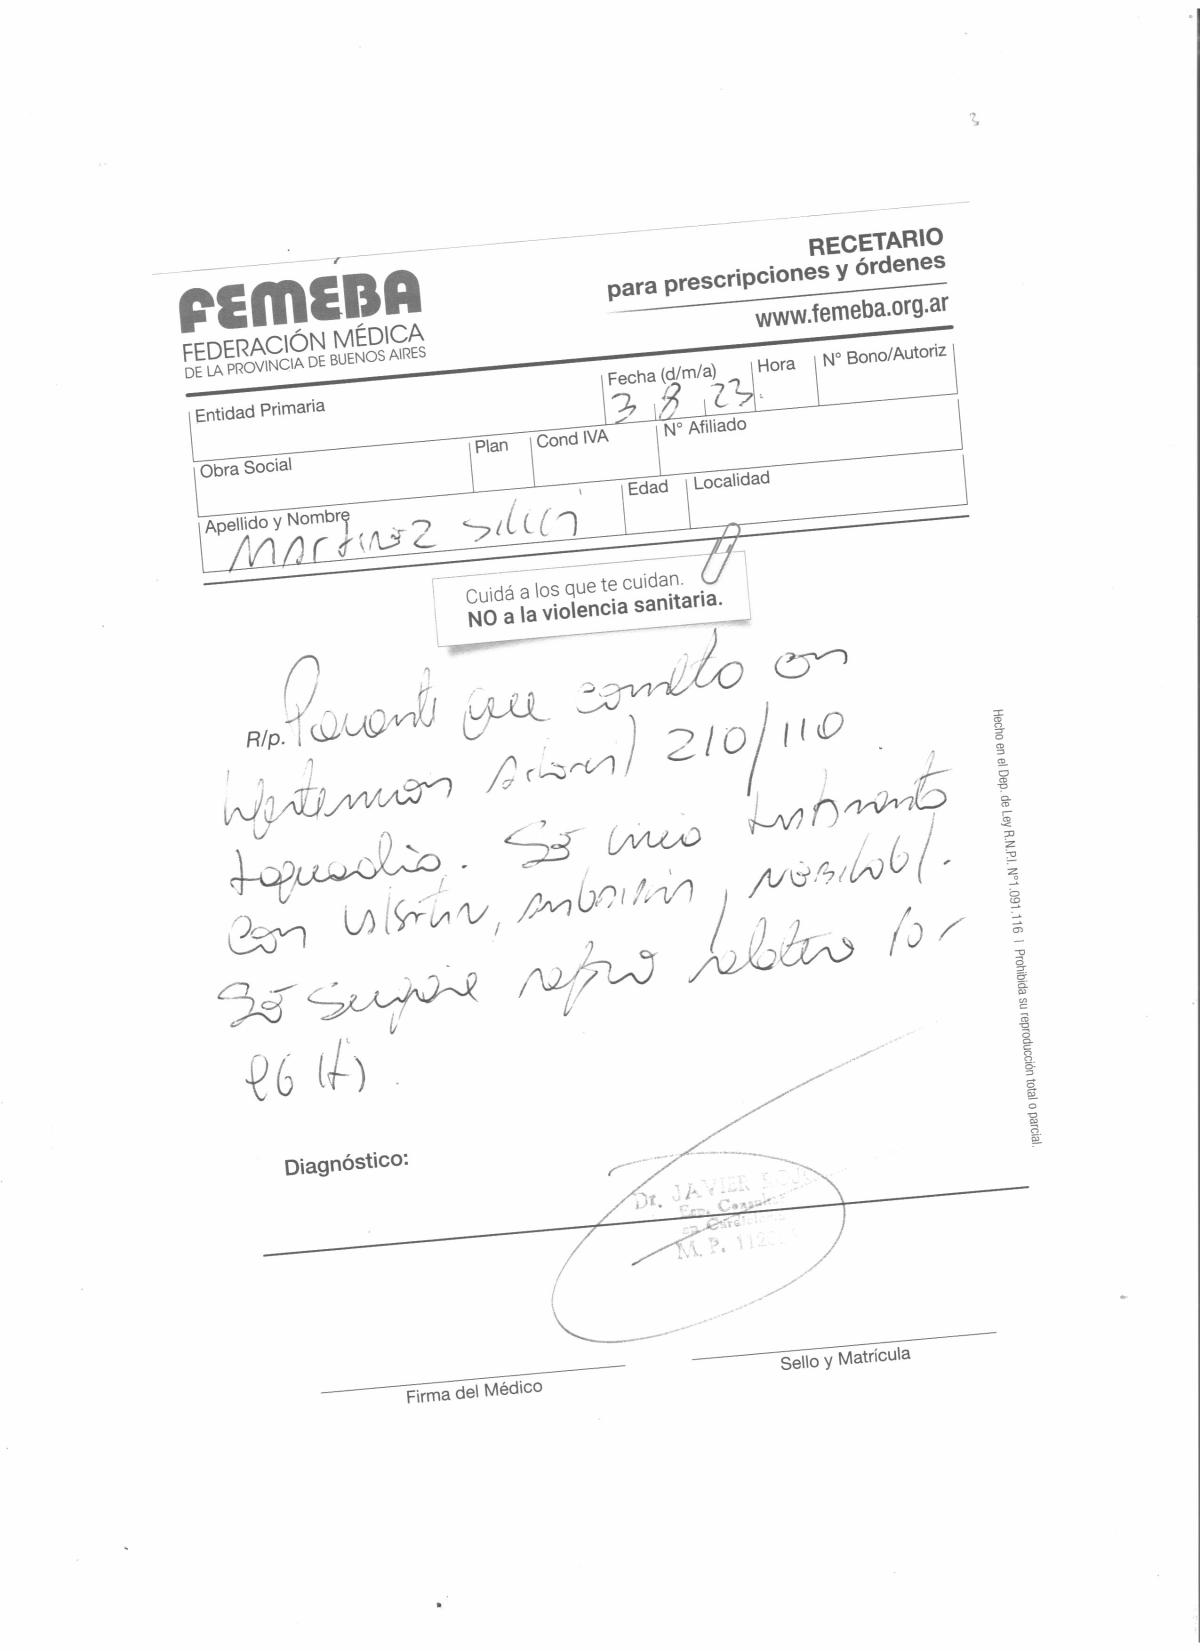 RECETARIO
para prescripciones y órdenes
www.femeba.org.ar
FEMEBA
FEDERACIÓN MÉDICA
DE LA PROVINCIA DE BUENOS AIRES
Entidad Primaria
Fecha (d/m/a) 3 8 23
Hora
N° Bono/Autoriz
Obra Social
Plan
Cond IVA
N° Afiliado
Apellido y Nombre MARTINEZ
Edad
Localidad
Cuidá a los que te cuidan.
NO a la violencia sanitaria.
R/p. Paciente que consulto con
hipertension arterial 210/110
taquicardia. Se inicio tratamiento
con valsartan, amlodipina, NEBIVOLOL.
Se sugiere reposo relativo por
96 (H).
Diagnóstico:
Dr. JAVIER
Esp. Consultor
en Cardiología
M. P.
Firma del Médico
Sello y Matrícula
Hecho en el Dep. de Ley R.N.P.I. N°1.091.116 | Prohibida su reproducción total o parcial.